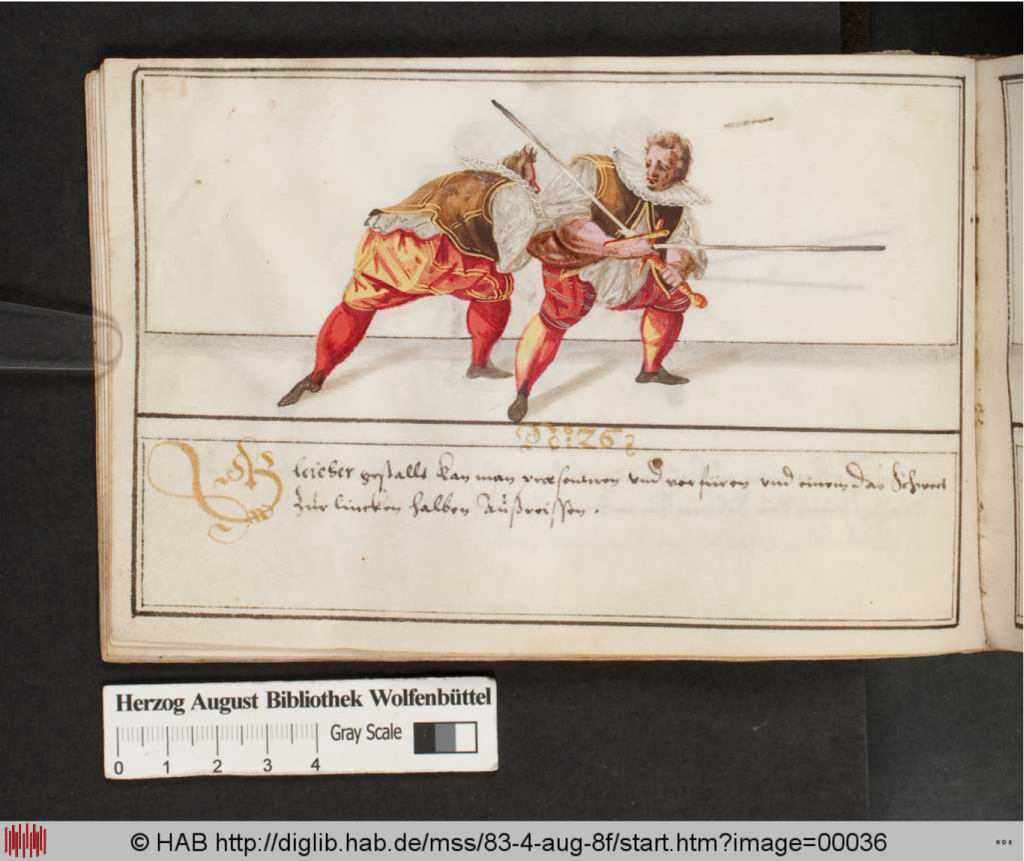 No: 26
Gleicher gestallt kan man præsentiren und verfüren und einem das Schwert
Zur lincken halben Außreissen.
Herzog August Bibliothek Wolfenbüttel
Gray Scale
0 1 2 3 4
© HAB http://diglib.hab.de/mss/83-4-aug-8f/start.htm?image=00036